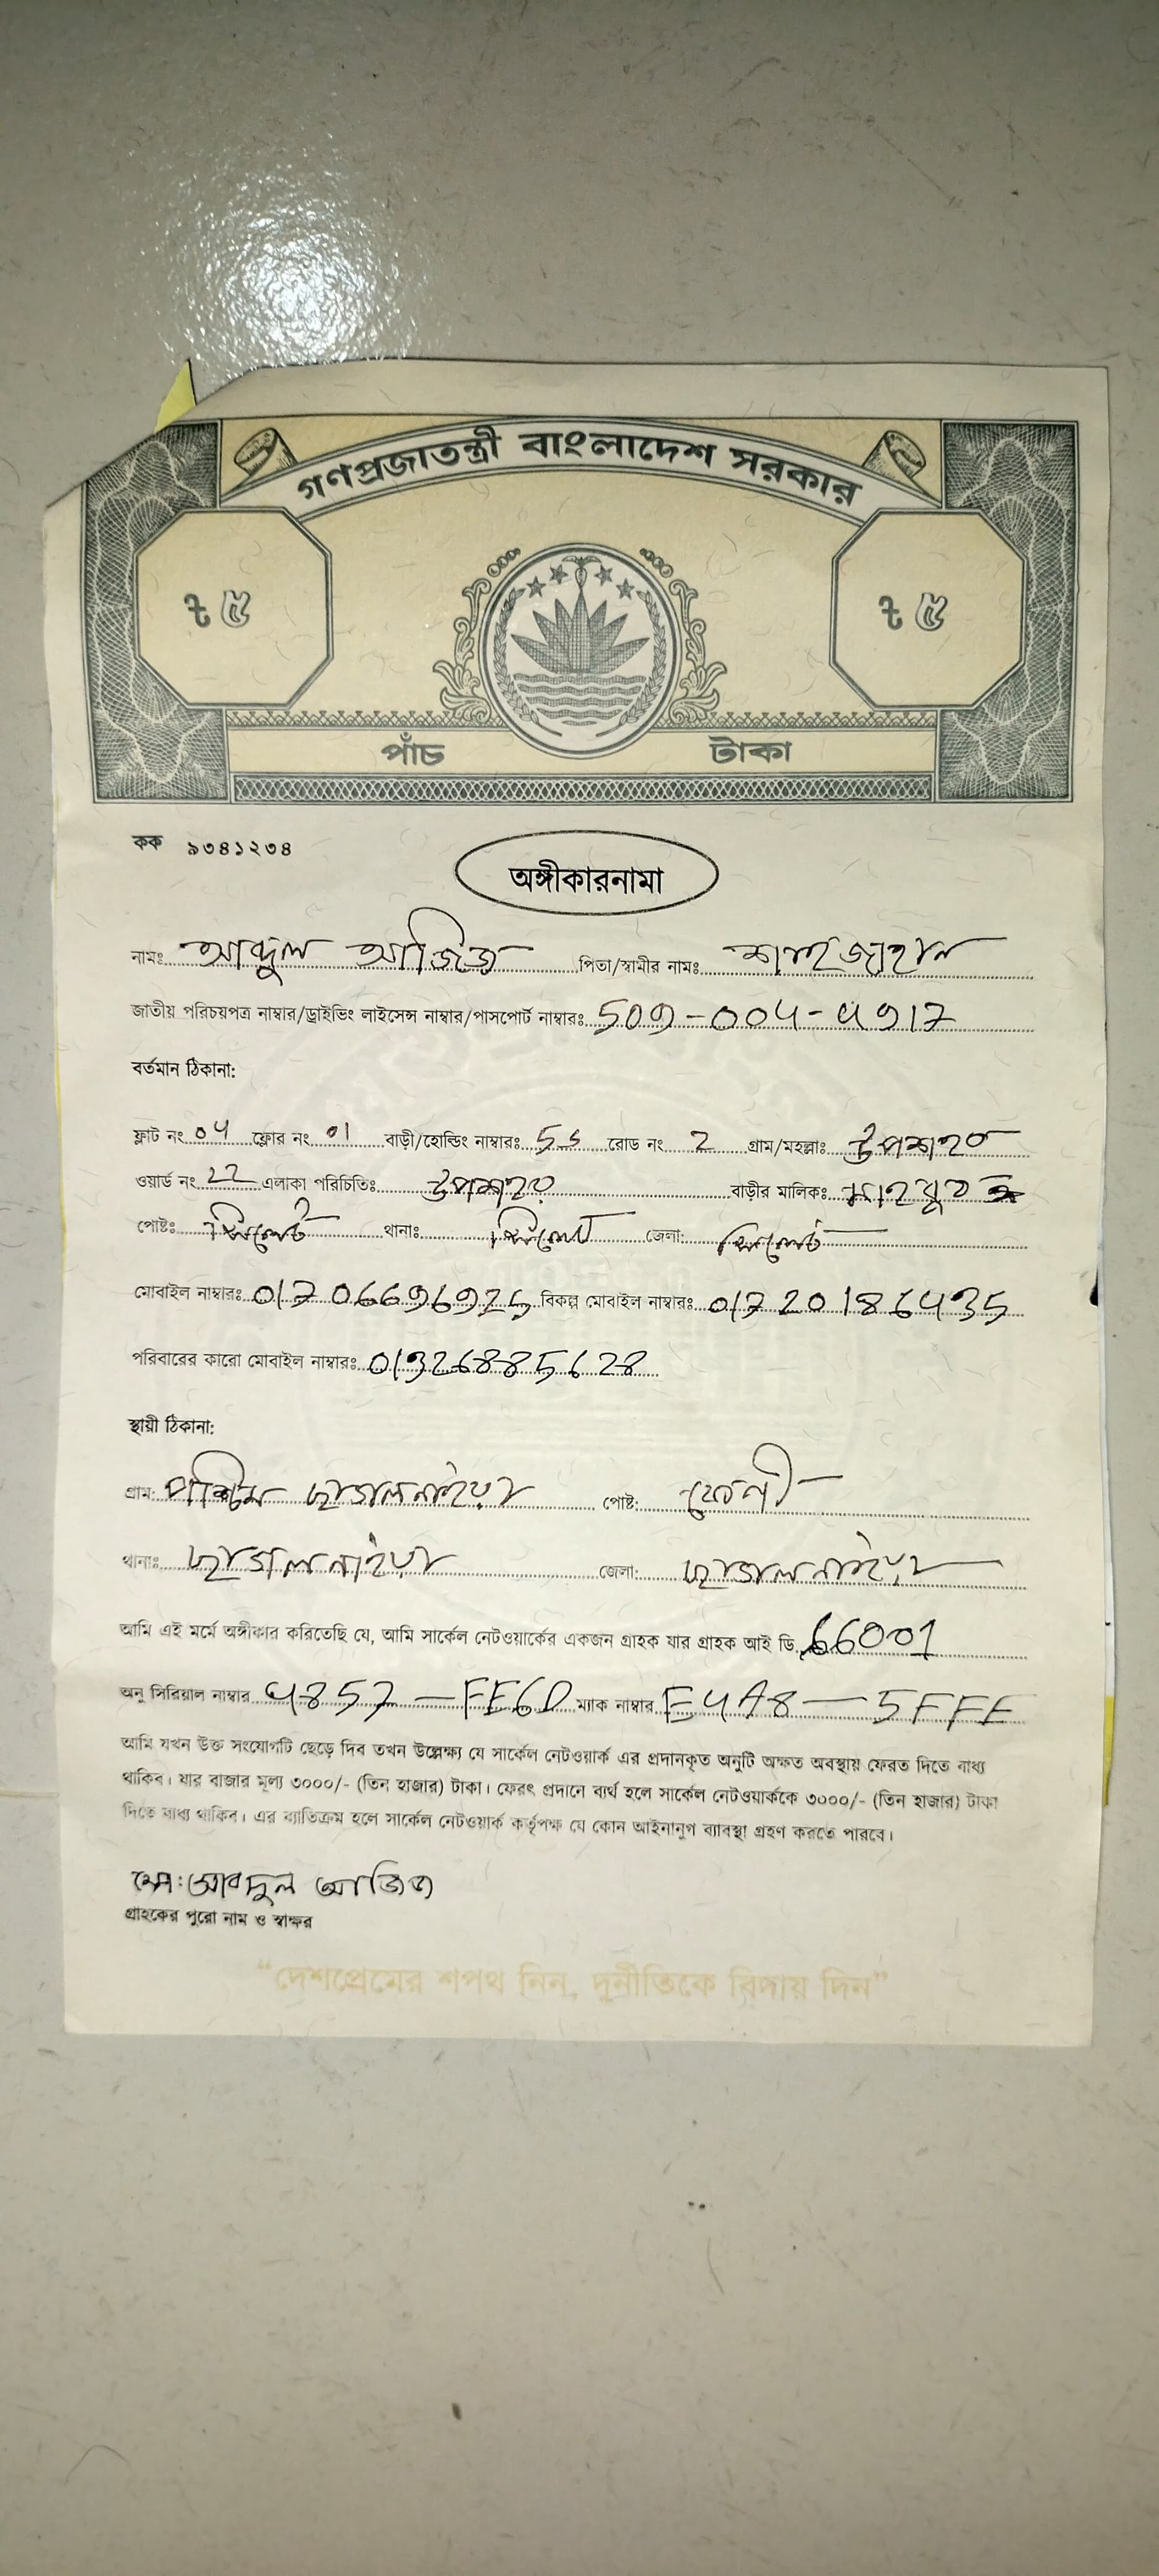 গণপ্রজাতন্ত্রী বাংলাদেশ সরকার
৳ ৫ ৳ ৫
পাঁচ টাকা
কক ৯৩৪১২৩৪
অঙ্গীকারনামা
নামঃ আব্দুল আজিজ পিতা/স্বামীর নামঃ শাহজাহান
জাতীয় পরিচয়পত্র নাম্বার/ড্রাইভিং লাইসেন্স নাম্বার/পাসপোর্ট নাম্বারঃ 509-004-4917
বর্তমান ঠিকানা:
ফ্লাট নং 04 ফ্লোর নং 01 বাড়ী/হোল্ডিং নাম্বারঃ রোড নং 2 গ্রাম/মহল্লাঃ উপশহর
ওয়ার্ড নং 22 এলাকা পরিচিতিঃ উপশহর বাড়ীর মালিকঃ মাহবুব
পোষ্টঃ সিলেট থানাঃ সিলেট জেলা: সিলেট
মোবাইল নাম্বারঃ 01706696925 বিকল্প মোবাইল নাম্বারঃ 01720186435
পরিবারের কারো মোবাইল নাম্বারঃ 01926885628
স্থায়ী ঠিকানা:
গ্রাম: পশ্চিম ছাগলনাইয়া পোষ্ট: ফেনী
থানাঃ ছাগলনাইয়া জেলা: ছাগলনাইয়া
আমি এই মর্মে অঙ্গীকার করিতেছি যে, আমি সার্কেল নেটওয়ার্কের একজন গ্রাহক যার গ্রাহক আই ডি, 66001
অনু সিরিয়াল নাম্বার 4857-FE6D ম্যাক নাম্বার E4A8-5FFE
আমি যখন উক্ত সংযোগটি ছেড়ে দিব তখন উল্লেক্ষ্য যে সার্কেল নেটওয়ার্ক এর প্রদানকৃত অনুটি অক্ষত অবস্থায় ফেরত দিতে বাধ্য
থাকিব। যার বাজার মূল্য ৩০০০/- (তিন হাজার) টাকা। ফেরৎ প্রদানে ব্যর্থ হলে সার্কেল নেটওয়ার্ককে ৩০০০/- (তিন হাজার) টাকা
দিতে বাধ্য থাকিব। এর ব্যতিক্রম হলে সার্কেল নেটওয়ার্ক কর্তৃপক্ষ যে কোন আইনানুগ ব্যাবস্থা গ্রহণ করতে পারবে।
মো: আবদুল আজিজ
গ্রাহকের পুরো নাম ও স্বাক্ষর
“দেশপ্রেমের শপথ নিন, দুর্নীতিকে বিদায় দিন”